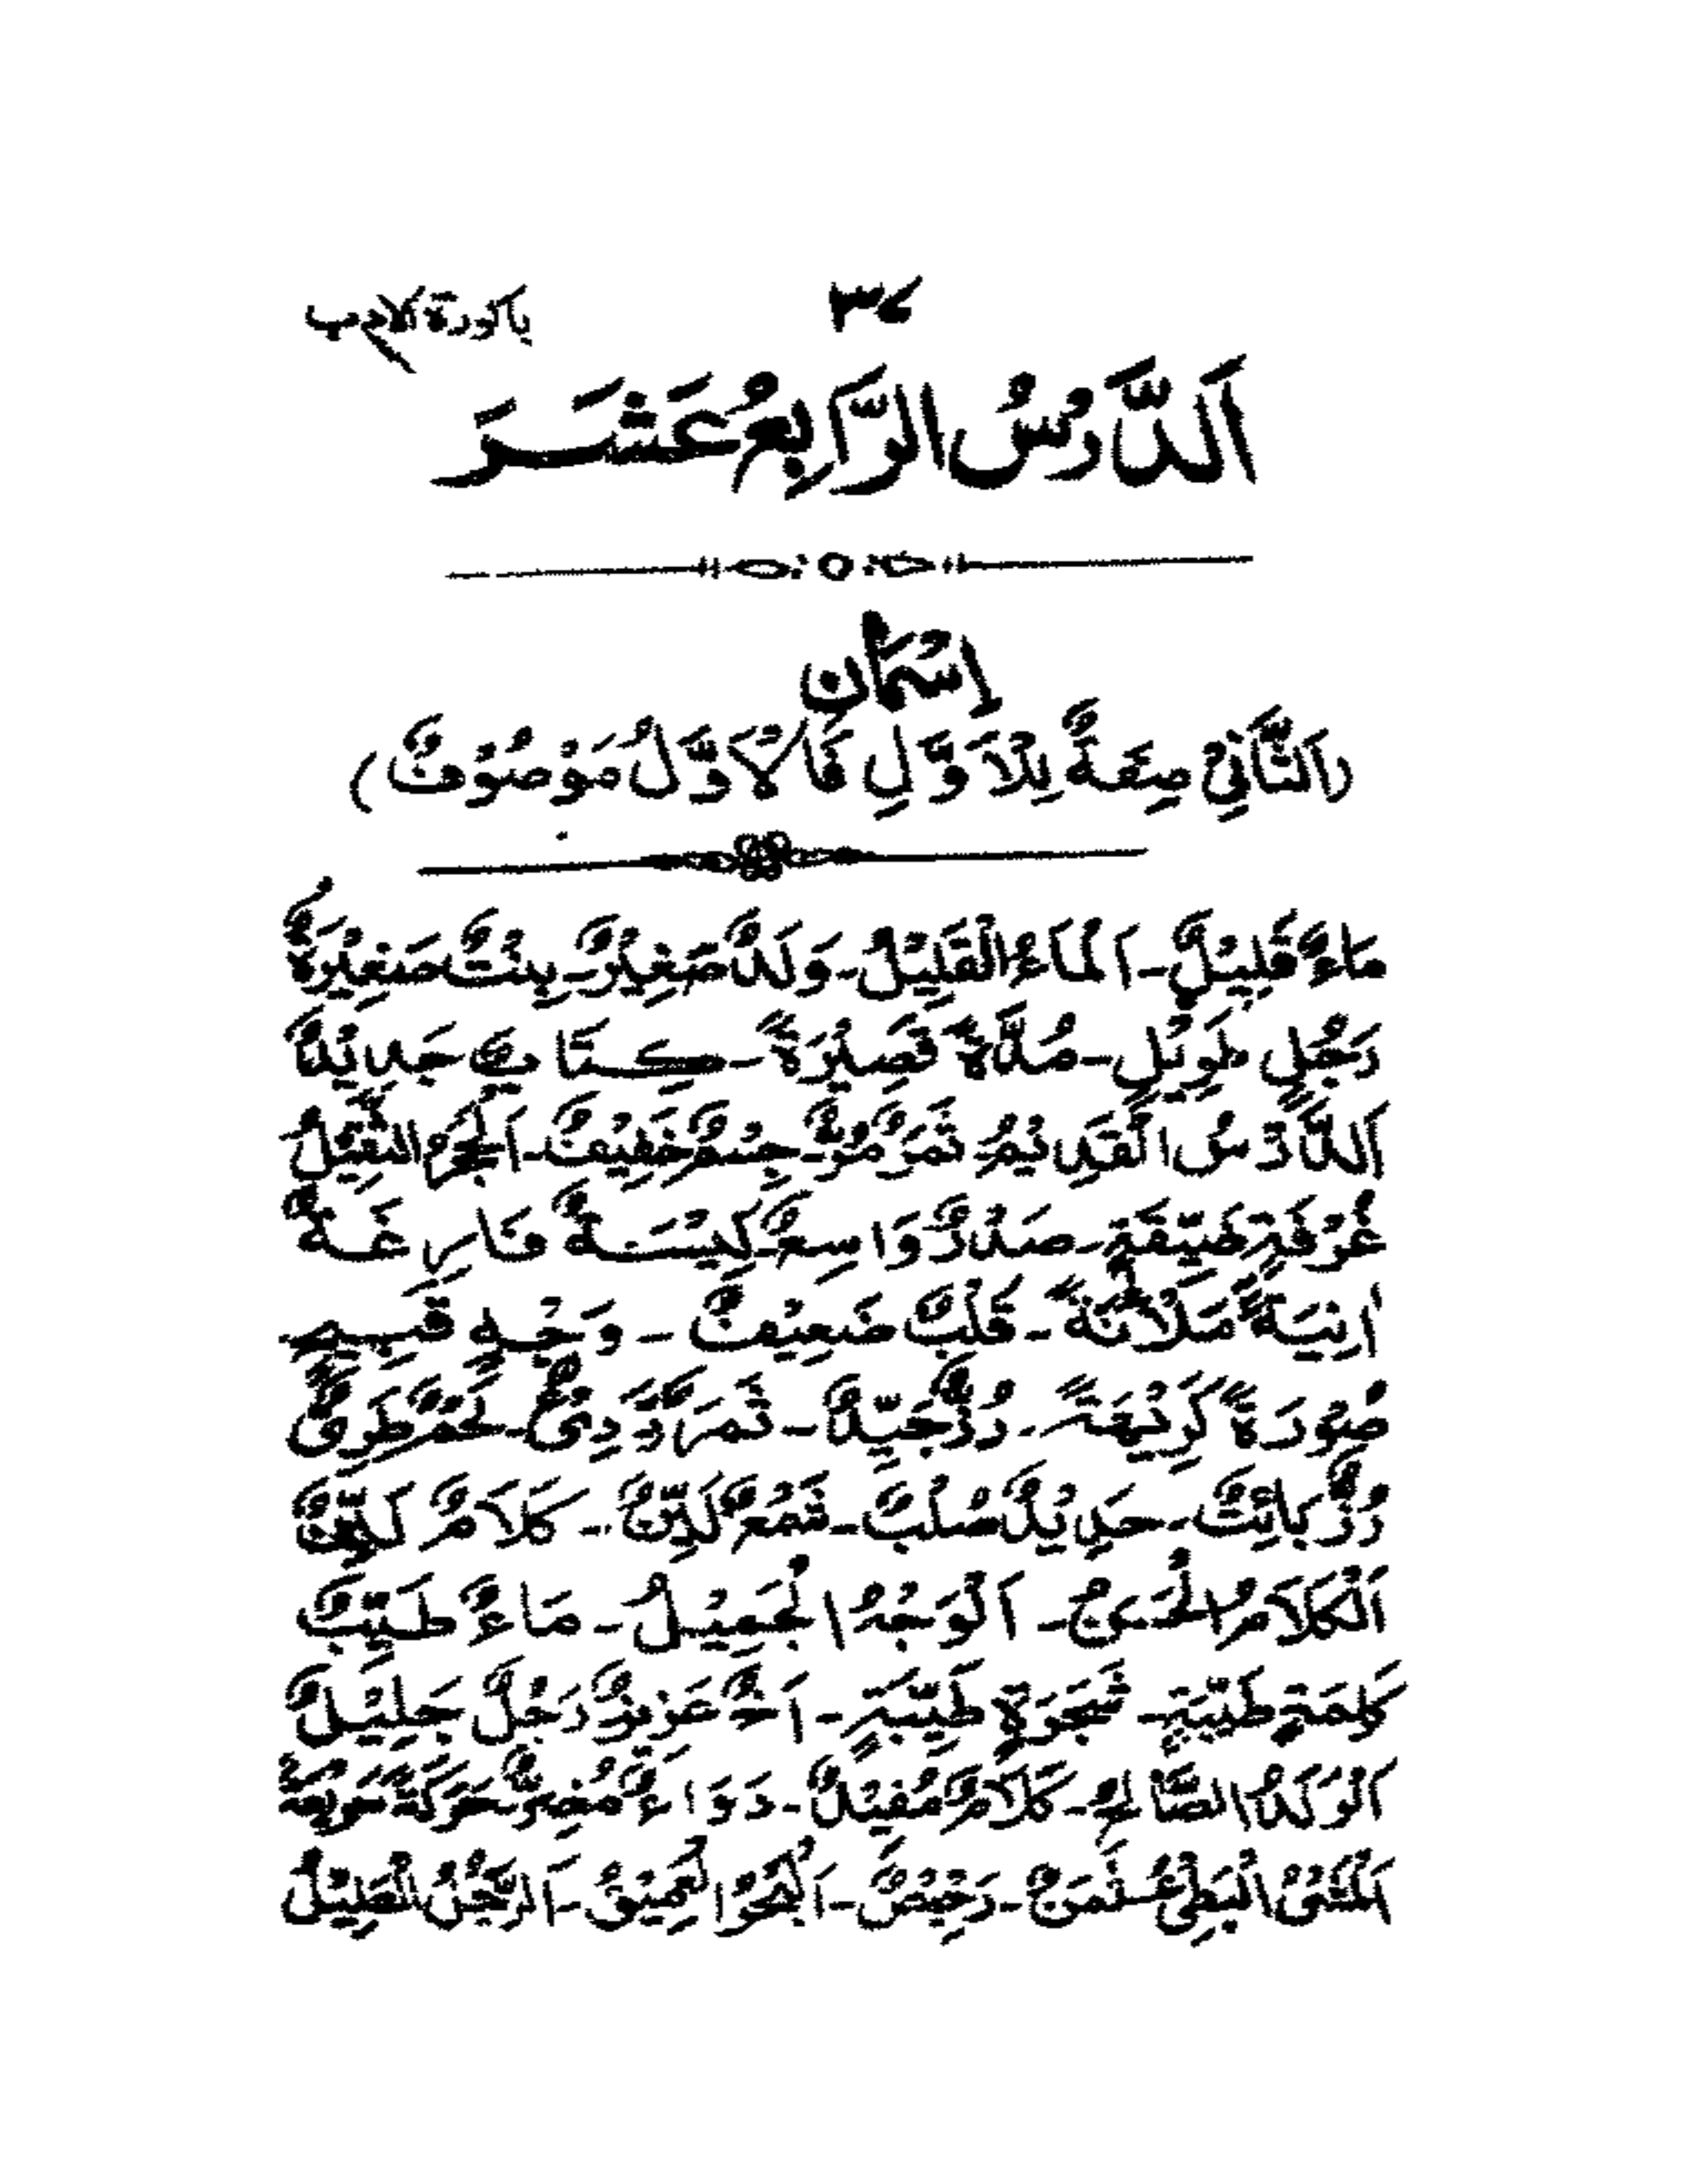 باكورة الادب
٣٤
اَلدَّرْسُ الرَّابِعُ عَشَرَ
اِسْمَانِ
(اَلثَّانِيْ صِفَةٌ لِلْاَوَّلِ فَالْاَوَّلُ مَوْصُوْفٌ)
مَاءٌ قَلِيْلٌ - اَلْمَاءُ الْقَلِيْلُ - وَلَدٌ صَغِيْرٌ - بِنْتٌ صَغِيْرَةٌ
رَجُلٍ طَوِيْلٍ - مُدَّةً قَصِيْرَةً - كِتَابٌ جَدِيْدٌ
اَلدَّرْسُ الْقَدِيْمُ - تَمَرٌ مُرٌّ - جِسْمٌ خَفِيْفٌ - اَلْحَجَرُ الثَّقِيْلُ
غُرْفَةٍ ضَيِّقَةٍ - صَدْرٌ وَاسِعٌ - كِيْسَةٌ فَارِغَةٌ
اٰنِيَةً مَلْاٰنَةً - قَلْبٌ ضَعِيْفٌ - وَجْهٍ قَبِيْحٍ
صُوْرَةً كَرِيْهَةً - رُزٌّ جَيِّدٌ - تَمَرٌ رَدِئٌ - لَحْمٌ طَرِیٌّ
رُزٌّ بَائِتٌ - حَدِيْدٌ صُلْبٌ - شَمْعٌ لَيِّنٌ - كَلَامٌ لَيِّنٌ
اَلْكَلَامُ الْحَرَجُ - اَلْوَجْهُ الْجَمِيْلُ - مَاءٌ طَيِّبٌ
كَلِمَةٍ طَيِّبَةٍ - شَجَرَةٍ طَيِّبَةٍ - اَخٌ عَزِيْزٌ رَجُلٌ جَلِيْلٌ
اَلْوَلَدُ الصَّالِحُ - كَلَامٌ مُفِيْدٌ - دَوَاءٌ مُضِرٌّ - حَرَكَةٌ سَرِيْعَةٌ
اَلْمَشْیُ الْبَطِیْءُ - ثَمَنٌ - رَخِيْصٌ - اَلْبَحْرُ الْعَمِيْقُ - اَلرَّجُلُ